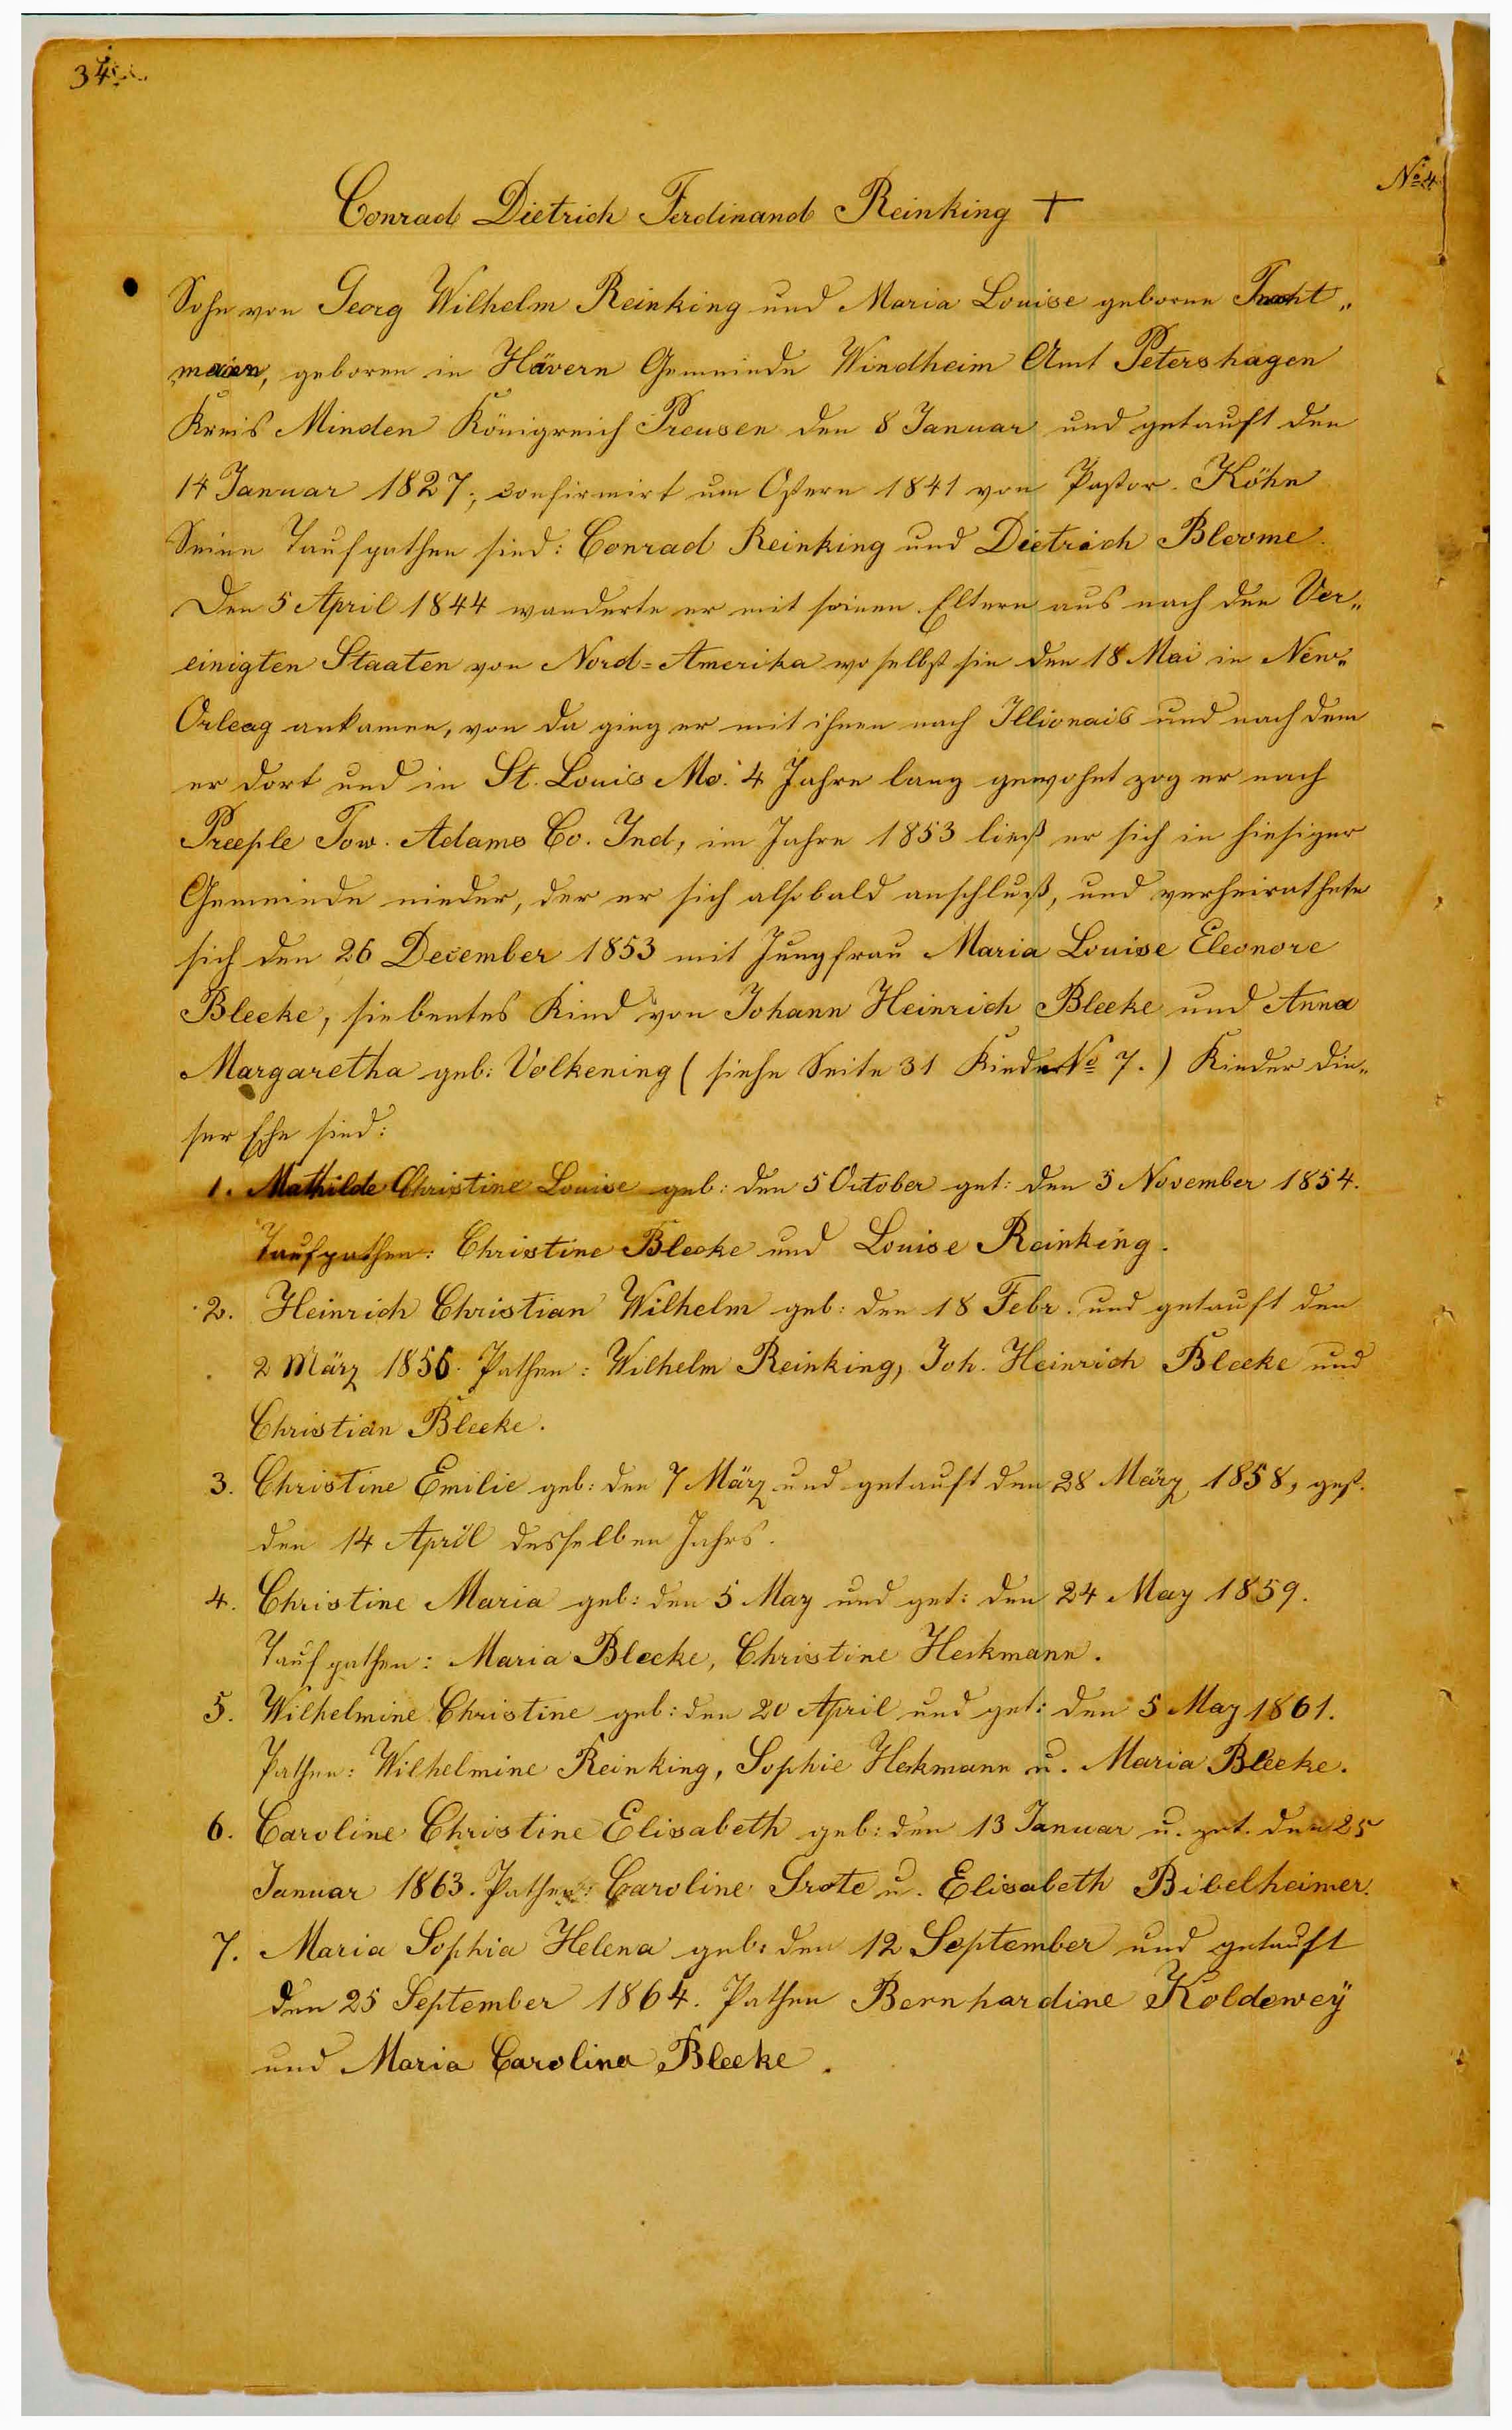 34.
No 4
Conrad Dietrich Ferdinand Reinking +
Sohn von Georg Wilhelm Reinking und Maria Louise geborne
maier, geboren in Hävern Gemeinde Windheim Amt Petershagen
Kreis Minden Königreich Preusen den 8 Januar und getauft den
14 Januar 1827; confirmirt um Ostern 1841 von Pastor Köhn
Seine Taufpathen sind: Conrad Reinking und Dietrich Bloome.
Den 5 April 1844 wanderte er mit seinen Eltern aus nach den Ver„
einigten Staaten von Nord=Amerika woselbst sie den 18 Mai in New„
Orleag ankamen, von da ging er mit ihnen nach Illionais und nach dem
er dort und in St. Louis Mo. 4 Jahre lang gewohnt zog er nach
Preeple Tow. Adams Co. Ind, im Jahre 1853 ließ er sich in hiesiger
Gemeinde nieder, der er sich alsobald anschluß, und verheirathete
sich den 26 December 1853 mit Jungfrau Maria Louise Eleonore
Bleeke, siebentes Kind von Johann Heinrich Bleeke und Anna
Margaretha geb: Volkening (siehe Seite 31 Kinder No 7.) Kinder die„
ser Ehe sind:
1. Mathilde Christine Louise geb: den 5 October get: den 5 November 1854.
Taufpathen: Christine Bleeke und Louise Reinking.
2. Heinrich Christian Wilhelm geb: den 18 Febr. und getauft den
2 März 1856. Pathen: Wilhelm Reinking, Joh. Heinrich Bleeke und
Christian Bleeke.
3. Christine Emilie geb: den 7 März und getauft den 28 März 1858, gest.
den 14 April desselben Jahrs.
4. Christine Maria geb: den 5 May und get: den 24 May 1859.
Taufpathen: Maria Bleeke, Christine Heckmann.
5. Wilhelmine Christine geb: den 20 April und get: den 5 May 1861.
Pathen: Wilhelmine Reinking, Sophie Heckmann u. Maria Bleeke.
6. Caroline Christine Elisabeth geb: den 13 Januar u. get. den 25
Januar 1863. Pathen: Caroline Grote u. Elisabeth Bibelheimer.
7. Maria Sophia Helena geb: den 12 September und getauft
den 25 September 1864. Pathen Bernhardine Koldewey
und Maria Carolina Bleeke.